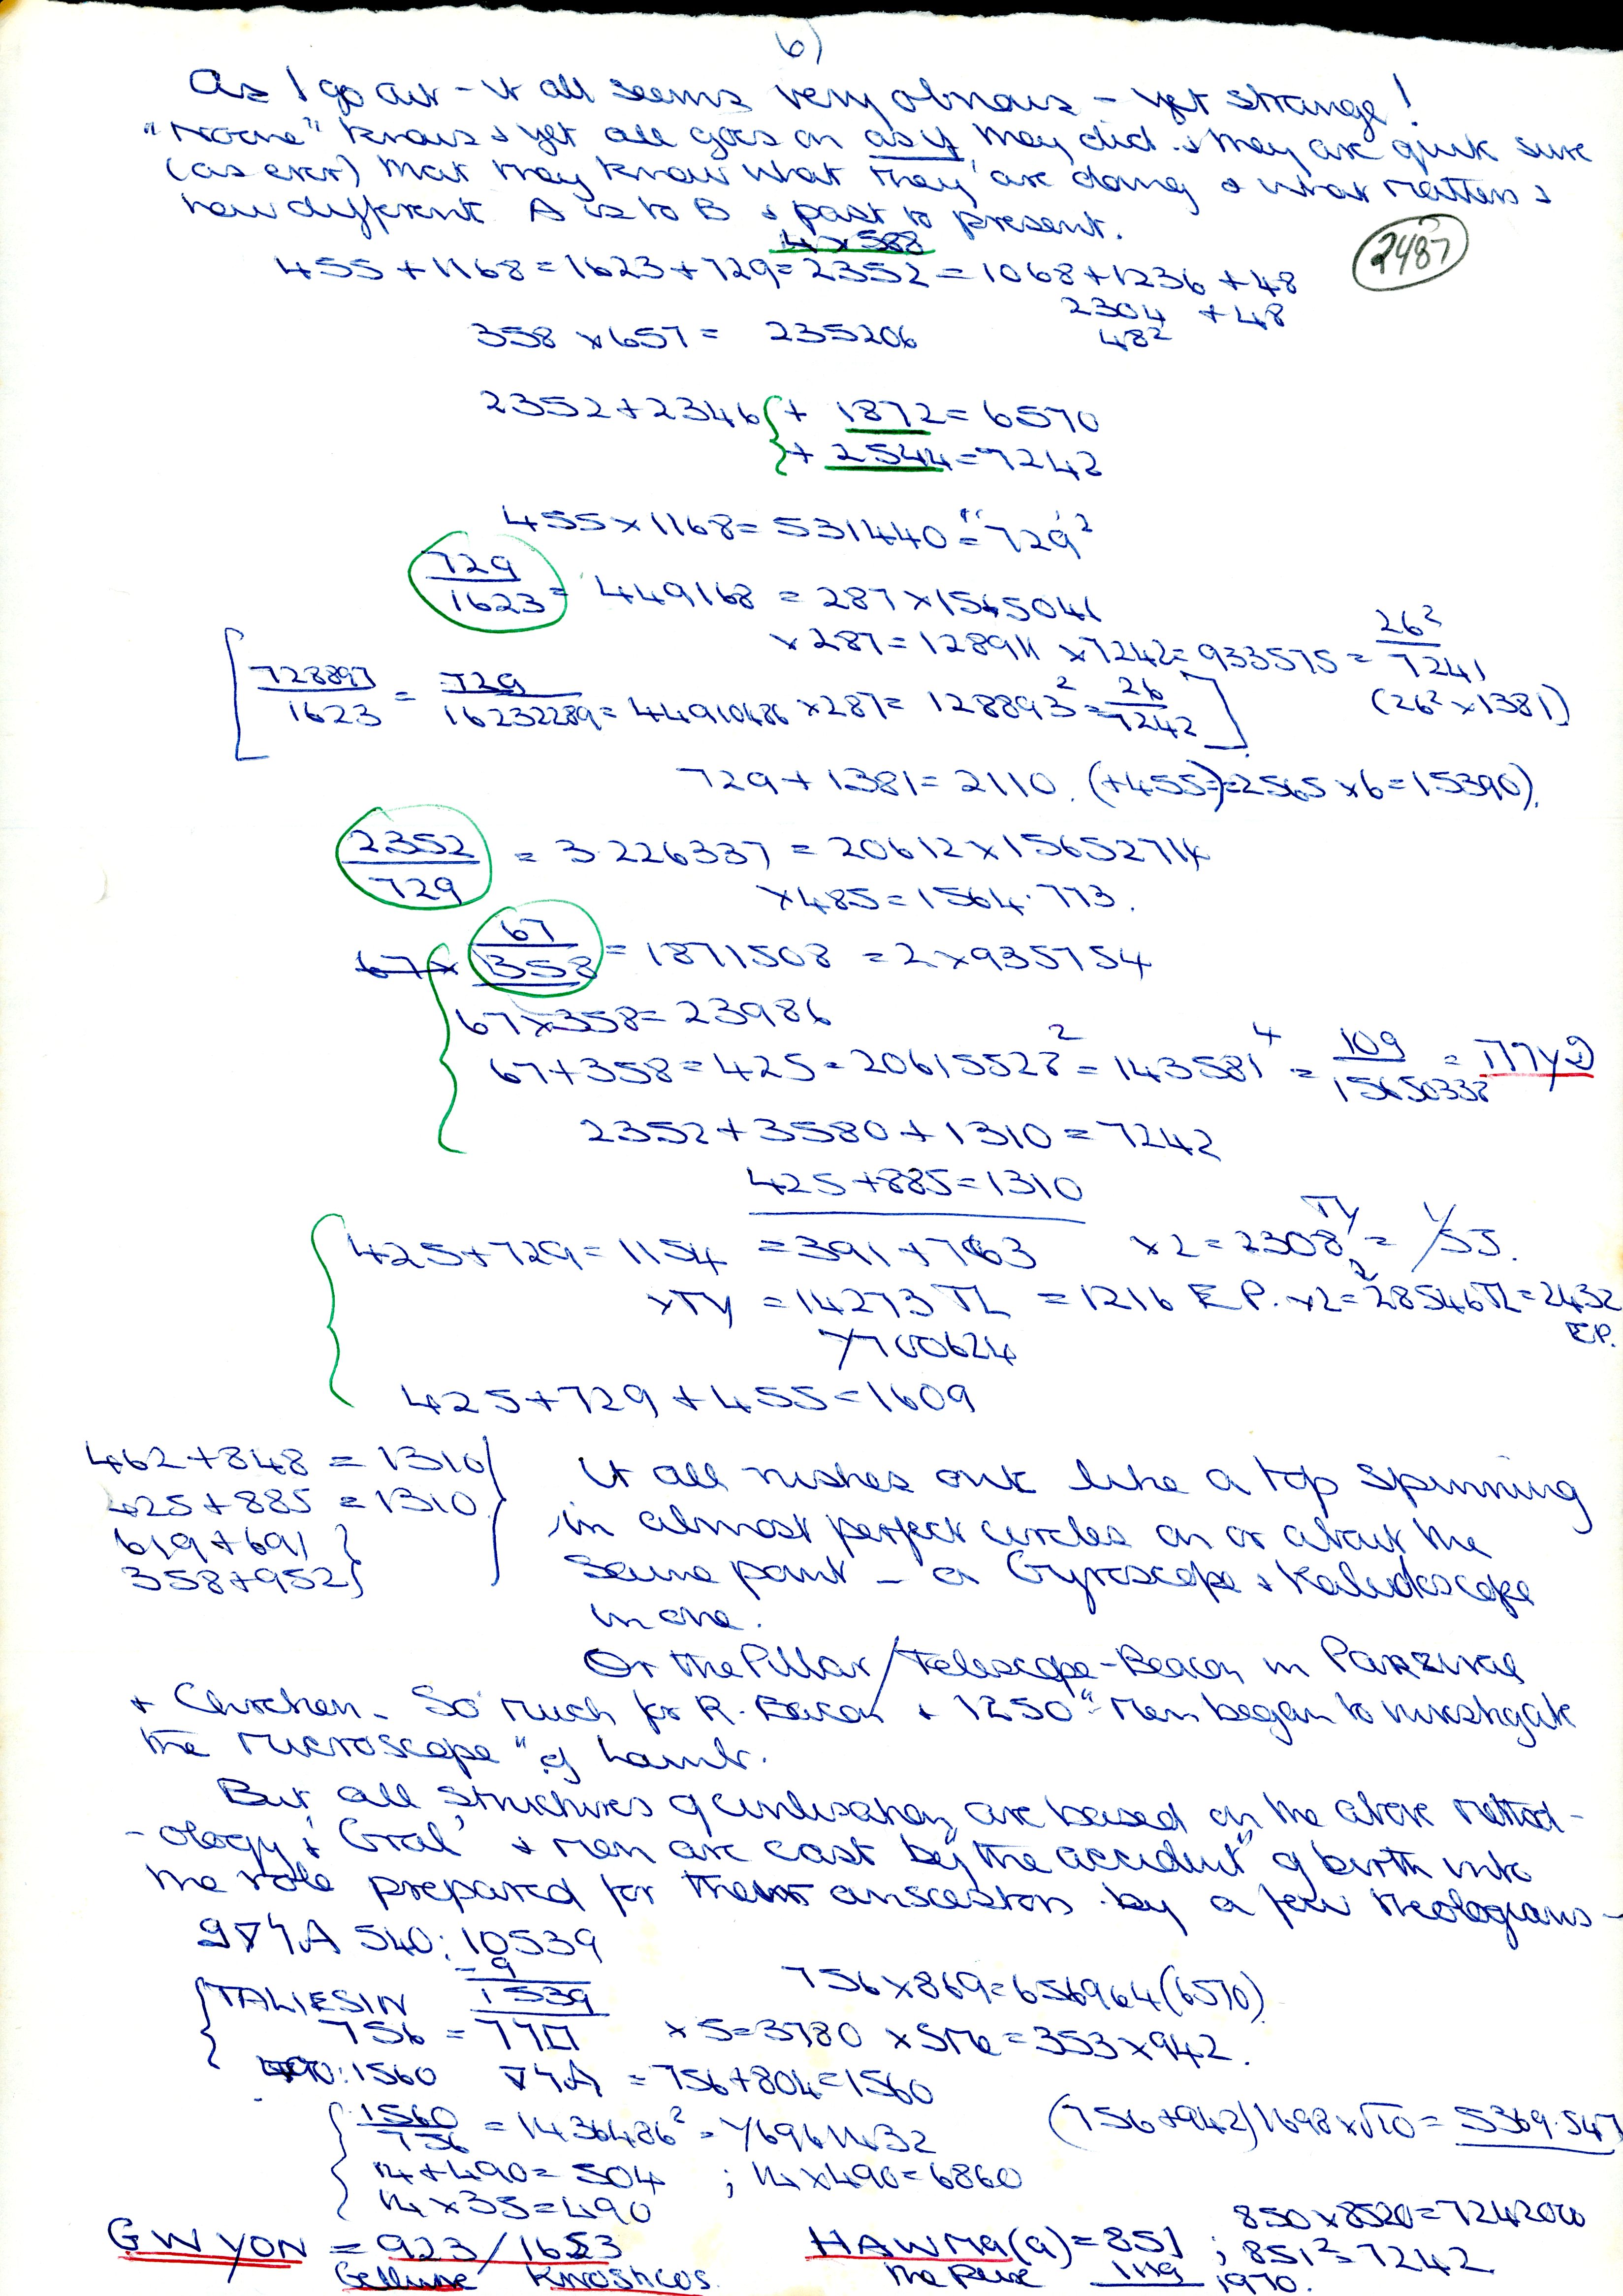 6)
As I go out - it all seems very obvious - yet strange!
"Noone" knows & yet all goes on as if they did. & they are quite sure
(as ever) that they know what they are doing & what matters &
how different A is to B & past to present.
4 x 588
2487
455 + 1168 = 1623 + 729 = 2352 = 1068 + 1236 + 48
2304 + 48
48²
358 x 657 = 235206
2352 + 2346 { + 1872 = 6570
+ 2544 = 7242
455 x 1168 = 531440 = "729²
729/1623 = 449168 = 287 x 1565041
x 287 = 128911 x 7242 = 933575 = 26²/7241
[728897/1623 = 729/16232289 = 44910486 x 287 = 128893² = 26/7242] (26² x 1381)
729 + 1381 = 2110. (+455) = 2565 x 6 = 15390).
2352/729 = 3.226337 = 20612 x 15652714
x 485 = 1564.773.
67/358 = 1871508 = 2 x 935754
67 x 358 = 23986
67 + 358 = 425 = 20615528² = 143581⁴ = 109/15650338 =
2352 + 3580 + 1310 = 7242
425 + 885 = 1310
425 + 729 = 1154 = 391 + 763 x 2 = 2308
= 14273 TL = 1216 E.P. x 2 = 28546 TL = 2432 E.P.
425 + 729 + 455 = 1609
462 + 848 = 1310
425 + 885 = 1310
619 + 691
358 + 952
It all rushes out like a top spinning
in almost perfect circles on or about the
same point - a Gyroscope & Kaleidoscope
in one.
Or the Pillar/Telescope-Beacon in Parzival
& So much for R. Bacon & 1250 "Men began to investigate
the microscope" of Lamb.
But all structures of civilisation are based on the above method-
-ology & 'Gral' & men are cast by "the accident" of birth into
the role prepared for their anscestors by a few theologians -
540: 10539
- 9
1539
TALIESIN
756 = 756 x 869 = 656964 (6570)
x 5 = 3780 x 5 = 353 x 942.
490:1560 = 756 + 804 = 1560
1560/756 = 1436486² = (756 + 942) 1698 x √10 = 5369.547
14 + 490 = 504 ; 14 x 490 = 6860
14 x 35 = 490
850 x 8520 = 7242000
GWYON = 923/1623 HAWMA(a) = 851 ; 851² = 7242
the Pure 1970.